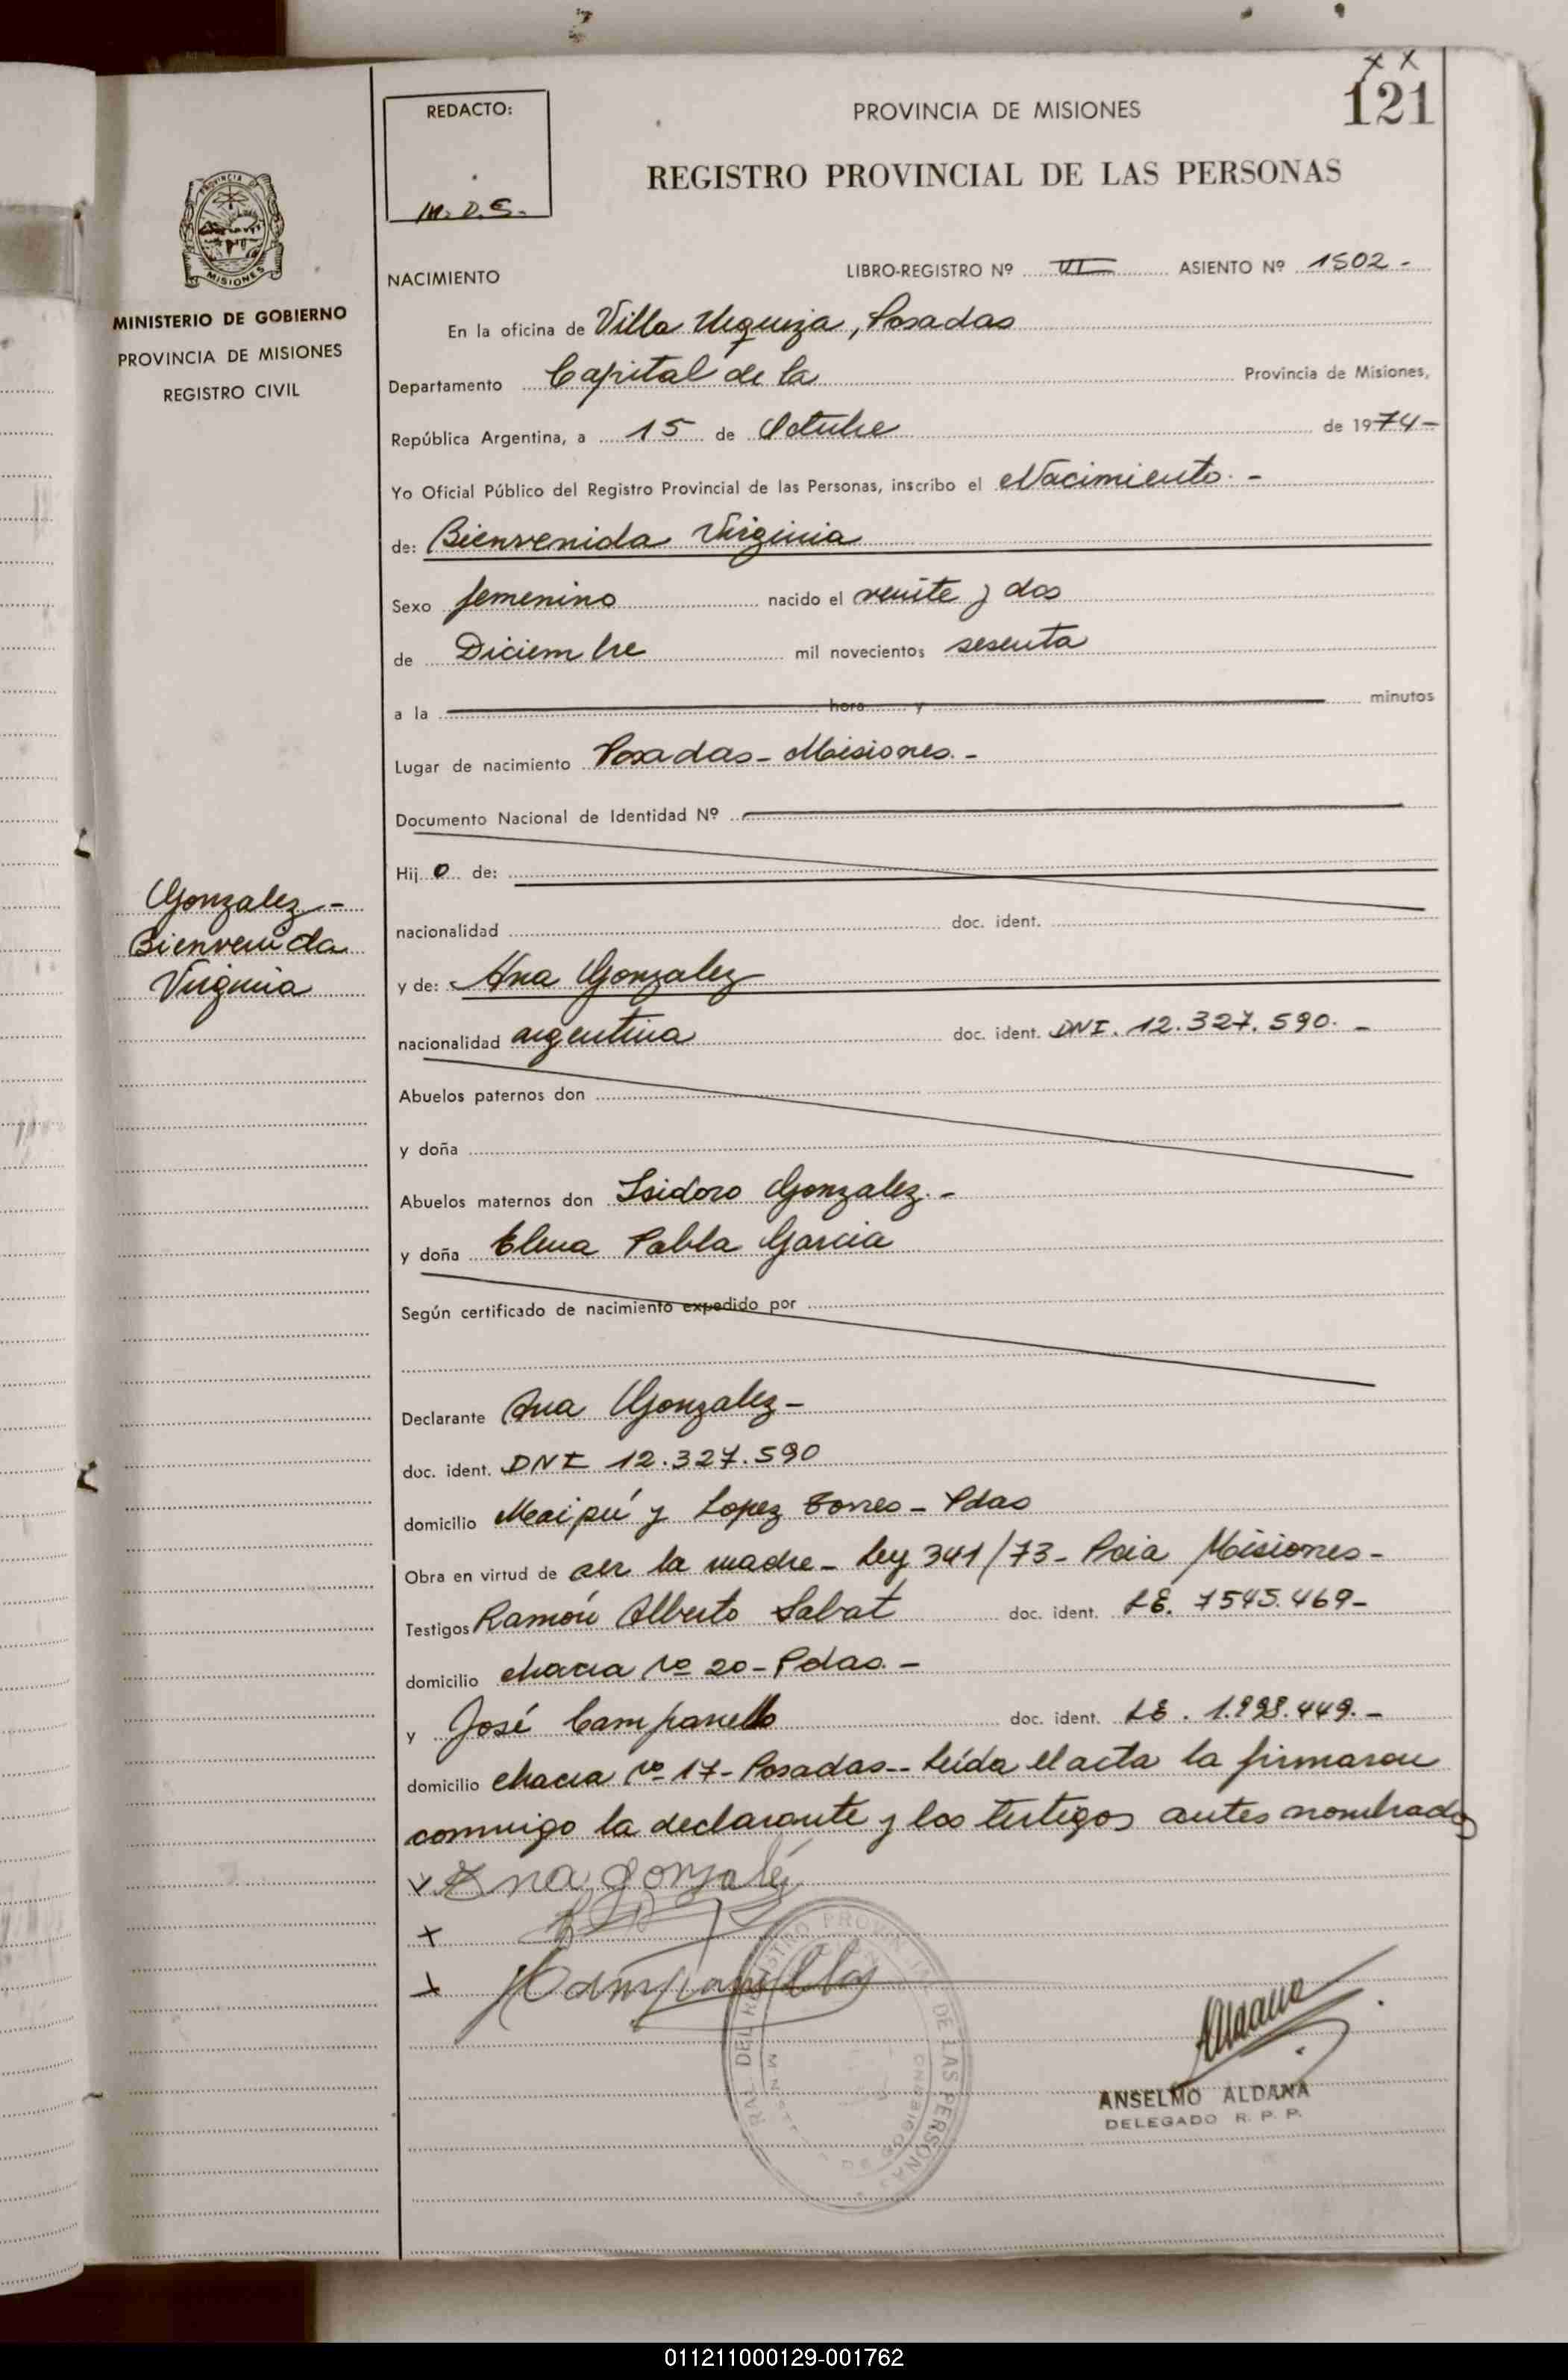 121
REDACTO:
M. D. S.
PROVINCIA DE MISIONES
REGISTRO PROVINCIAL DE LAS PERSONAS
PROVINCIA
MISIONES
MINISTERIO DE GOBIERNO
PROVINCIA DE MISIONES
REGISTRO CIVIL
NACIMIENTO LIBRO-REGISTRO Nº VI ASIENTO Nº 1502 -
En la oficina de Villa Urquiza, Posadas
Departamento Capital de la Provincia de Misiones,
República Argentina, a 15 de Octubre de 1974-
Yo Oficial Público del Registro Provincial de las Personas, inscribo el Nacimiento. -
de: Bienvenida Virginia
Sexo femenino nacido el veinte y dos
de Diciembre mil novecientos sesenta
a la hora y minutos
Lugar de nacimiento Posadas - Misiones. -
Documento Nacional de Identidad Nº
Hij o de:
nacionalidad doc. ident.
Gonzalez -
Bienvenida
Virginia
y de: Ana Gonzalez
nacionalidad argentina doc. ident. DNI. 12.327.590. -
Abuelos paternos don
y doña
Abuelos maternos don Isidoro Gonzalez. -
y doña Elena Pabla Garcia
Según certificado de nacimiento expedido por
Declarante Ana Gonzalez -
doc. ident. DNI 12.327.590
domicilio Maipú y Lopez Torres - Pdas
Obra en virtud de ser la madre - Ley 341/73 - Pcia Misiones -
Testigos Ramón Alberto Sabat doc. ident. LE. 7545.469-
domicilio chacra Nº 20 - Pdas. -
y José Campanello doc. ident. LE. 1.998.449. -
domicilio chacra Nº 17 - Posadas -- Leída el acta la firmaron
conmigo la declarante y los testigos antes nombrados
x Ana gonzalez
x
x
ANSELMO ALDANA
DELEGADO R. P. P.
011211000129-001762